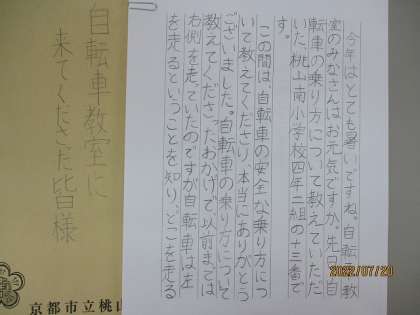 自転車教室に
来てくださった皆様
京都市立桃山
今年はとても暑いですね。自転車教
室のみなさんはお元気ですか。先日、自
転車の乗り方について教えていただ
いた、桃山南小学校四年二組の十三番で
す。
この間は、自転車の安全な乗り方につ
いて教えてくださり、本当にありがとう
ございました。自転車の乗り方について
教えてくださったおかげで、以前までは
右側を走っていたのですが自転車は左
を走るということを知り、どこを走る
2022/07/20